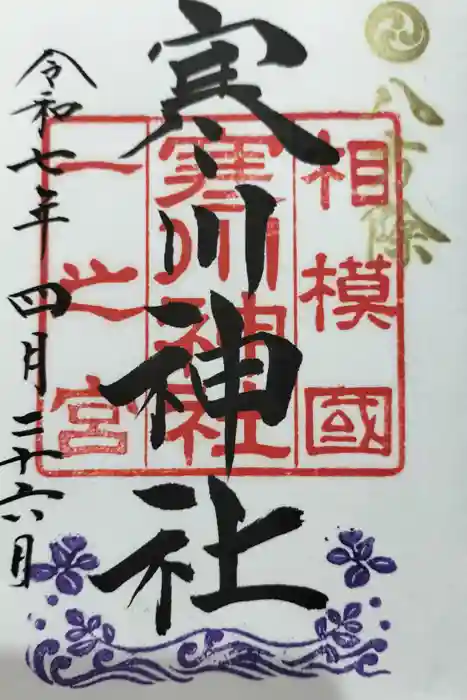 八方除
相模國
寒川神社
寒川神社
一之宮
令和七年四月二十六日